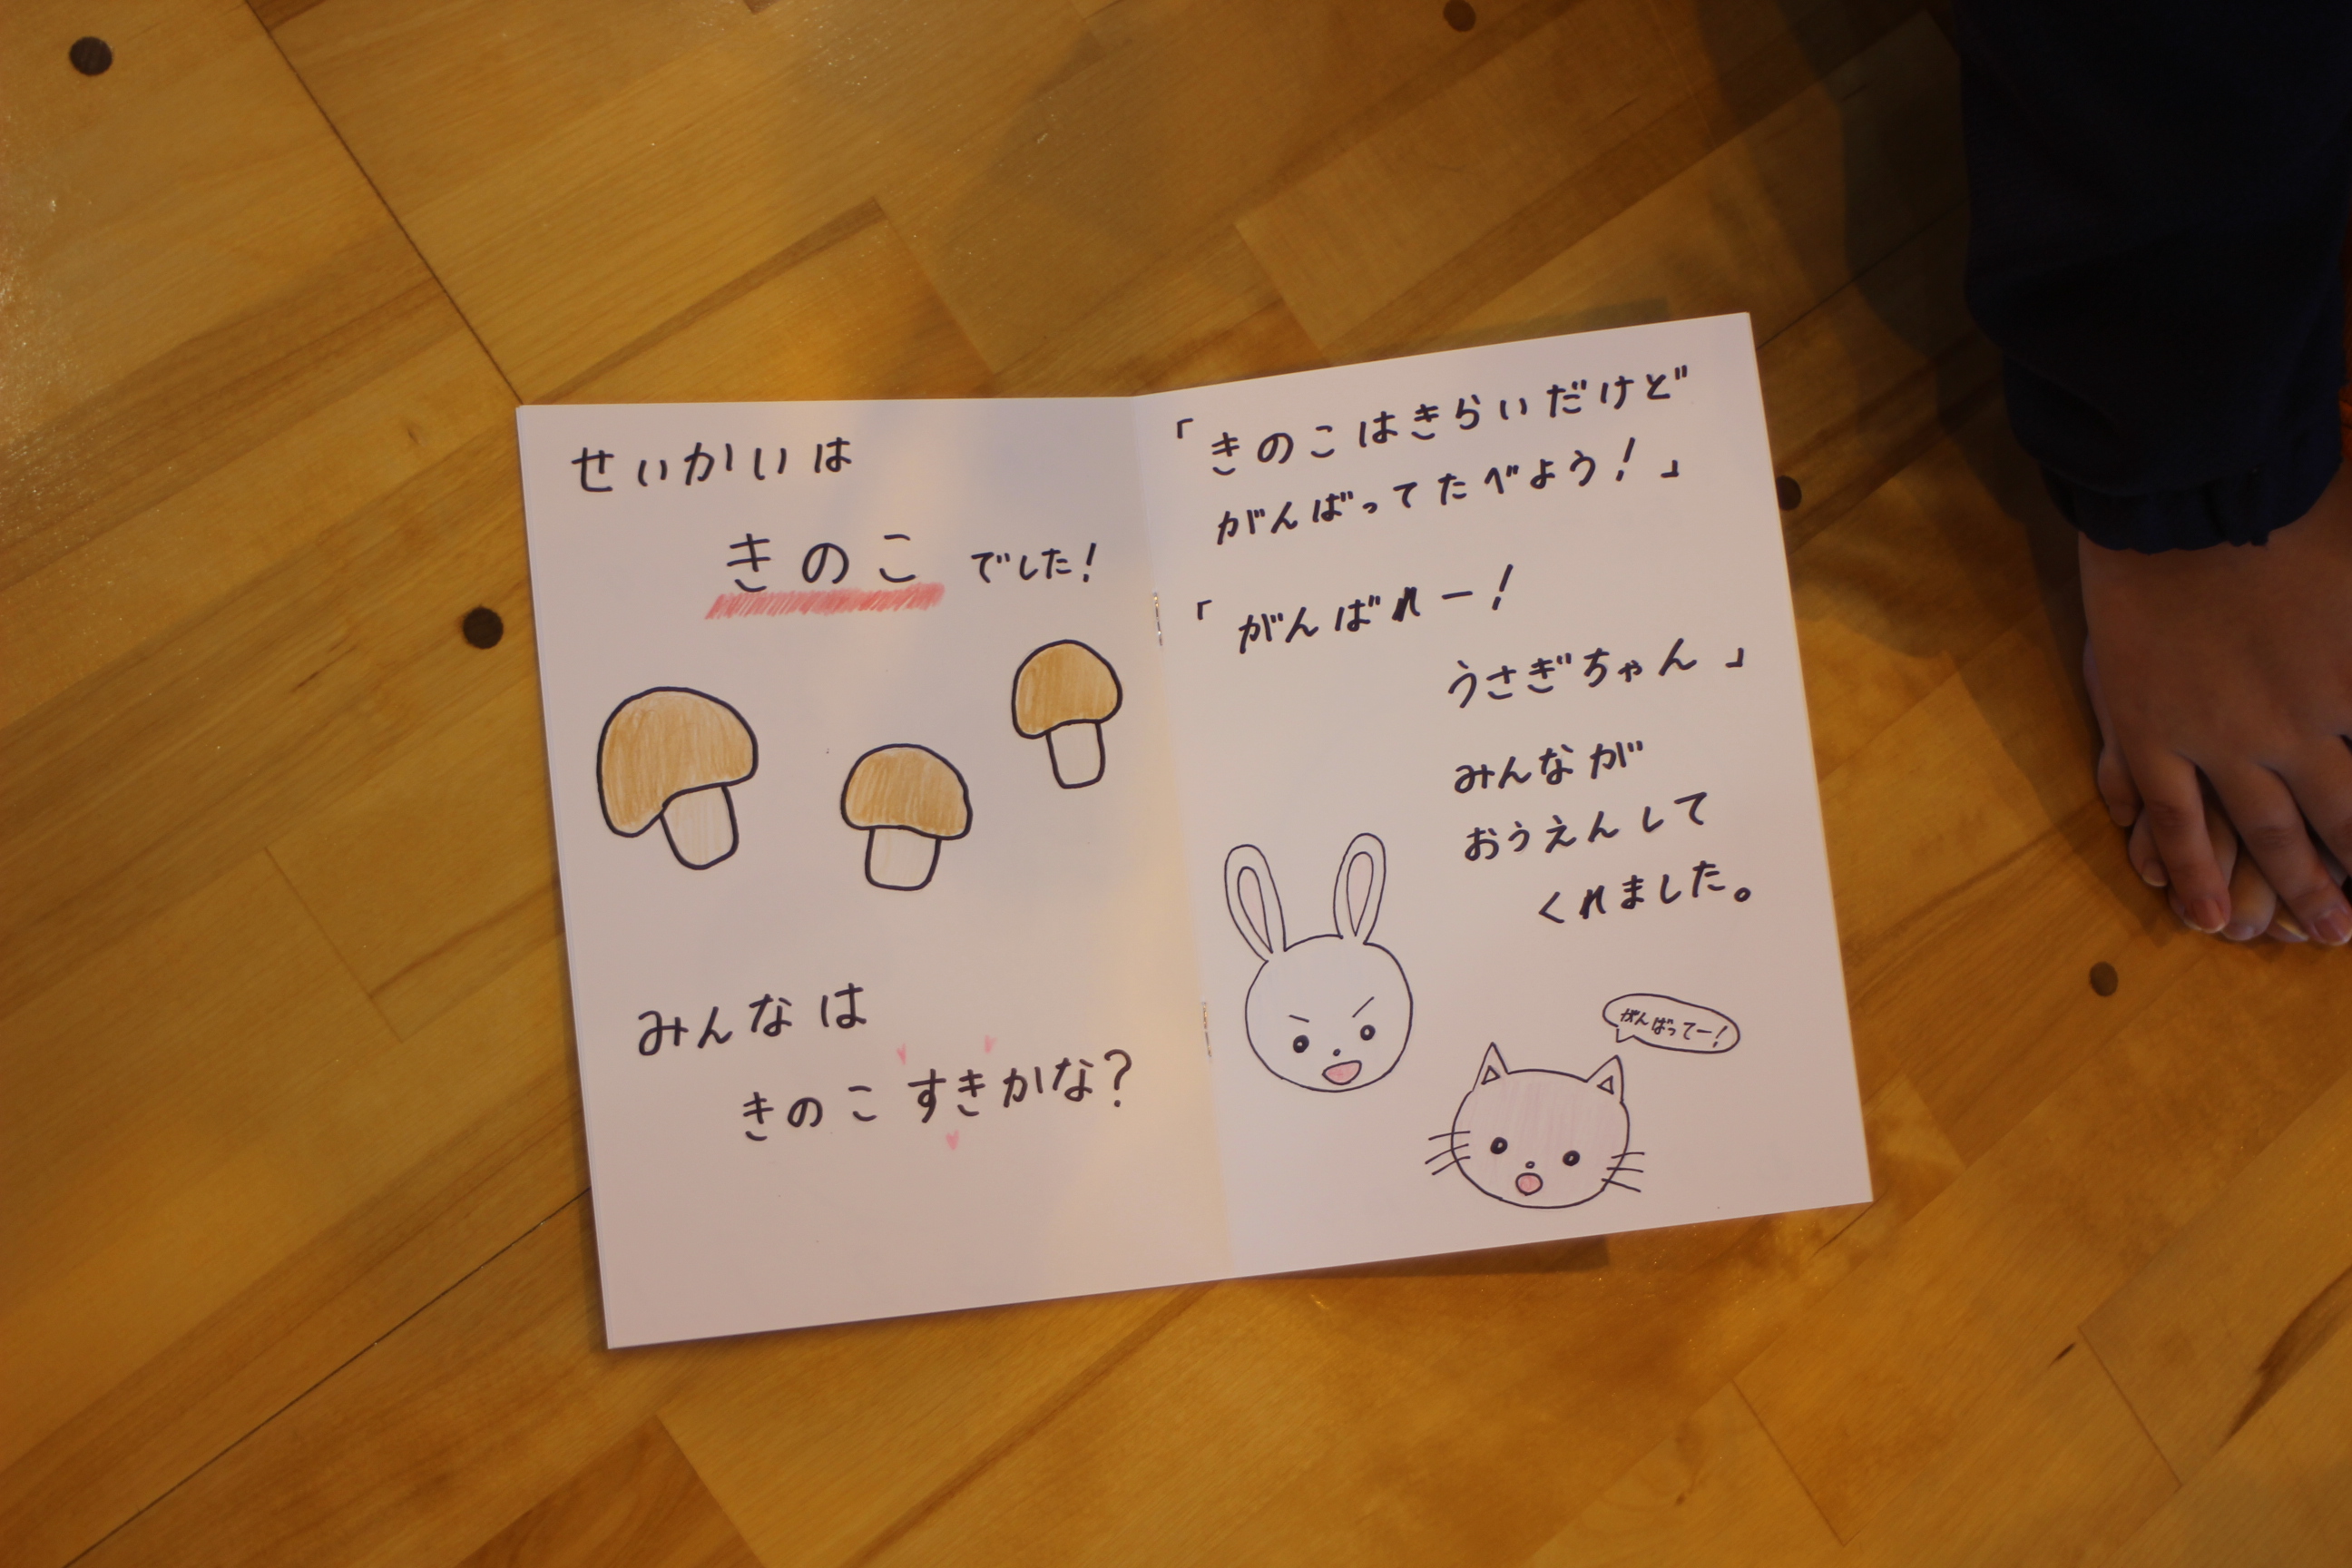 せいかいは
きのこでした!
みんなは
きのこすきかな?
「きのこはきらいだけど
がんばってたべよう!」
「がんばれー!
うさぎちゃん」
みんなが
おうえんして
くれました。
がんばってー!